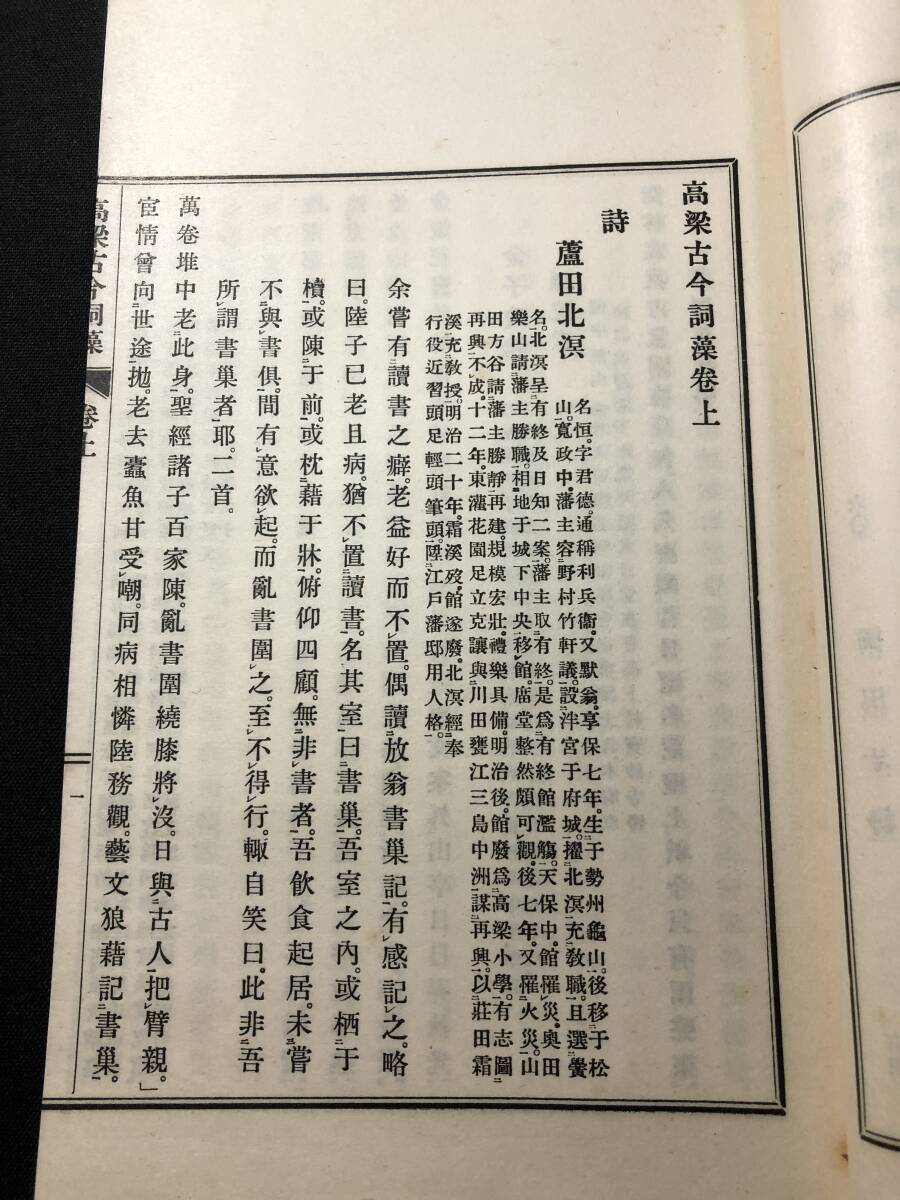 高梁古今詞藻卷上
詩
蘆田北溟
名恒。字君德。通稱利兵衞。又默翁。享保七年。生于勢州龜山。後移于松
山。寬政中。藩主容野村竹軒議。設泮宮于府城。擢北溟充敎職。且選黌
名。北溟呈有終及日知二案。藩主取有終。是爲有終館濫觴。天保中。館罹災。奧田
樂山請藩主勝職。相地于城下中央移館。庿堂整然頗可觀。後七年。又罹火災。山
田方谷請藩主勝靜再建。規模宏壯。禮樂具備。明治後。館廢爲高梁小學。有志圖
再興不成。十二年。東灌花園足立克讓與川田甕江三島中洲謀再興。以莊田霜
溪充敎授。明治二十年。霜溪歿。館遂廢。北溟經奉
行役近習頭足輕頭筆頭。陞江戶藩邸用人格。
余嘗有讀書之癖。老益好而不置。偶讀放翁書巢記。有感記之。略
曰。陸子已老且病。猶不置讀書。名其室曰書巢。吾室之內。或栖于
櫝。或陳于前。或枕藉于牀。俯仰四顧。無非書者。吾飮食起居。未嘗
不與書俱。間有意欲起。而亂書圍之。至不得行。輙自笑曰。此非吾
所謂書巢者耶。二首。
萬卷堆中老此身。聖經諸子百家陳。亂書圍繞膝將沒。日與古人把臂親。」
宦情曾向世途拋。老去蠹魚甘受嘲。同病相憐陸務觀。藝文狼藉記書巢。
高梁古今詞藻
卷上
一